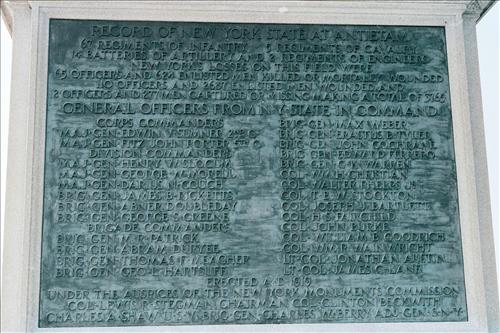 RECORD OF NEW YORK STATE AT ANTIETAM
67 REGIMENTS OF INFANTRY 5 REGIMENTS OF CAVALRY
14 BATTERIES OF ARTILLERY AND 2 REGIMENTS OF ENGINEERS
NEW YORK'S LOSSES ON THIS FIELD WERE
65 OFFICERS AND 624 ENLISTED MEN KILLED OR MORTALLY WOUNDED
110 OFFICERS AND 2687 ENLISTED MEN WOUNDED AND
2 OFFICERS AND 277 MEN CAPTURED OR MISSING MAKING A TOTAL OF 3765
GENERAL OFFICERS FROM N.Y. STATE IN COMMAND
CORPS COMMANDERS
MAJ. GEN. EDWIN V. SUMNER 2ND C.
MAJ. GEN. FITZ JOHN PORTER 5TH C.
DIVISION COMMANDERS
MAJ. GEN. HENRY W. SLOCUM
MAJ. GEN. GEORGE W. MORELL
MAJ. GEN. DARIUS N. COUCH
BRIG. GEN. JAMES B. RICKETTS
BRIG. GEN. ABNER DOUBLEDAY
BRIG. GEN. GEORGE S. GREENE
BRIGADE COMMANDERS
BRIG. GEN. M. R. PATRICK
BRIG. GEN. ABRAM DURYEE
BRIG. GEN. THOMAS F. MEAGHER
BRIG. GEN. GEO. L. HARTSUFF
BRIG. GEN. MAX WEBER
BRIG. GEN. ERASTUS B. TYLER
BRIG. GEN. JOHN COCHRANE
BRIG. GEN. EDWARD FERRERO
COL. G. K. WARREN
COL. WM. H. CHRISTIAN
COL. WALTER PHELPS JR.
COL. T. B. W. STOCKTON
COL. JOSEPH J. BARTLETT
COL. H. S. FAIRCHILD
COL. JOHN BURKE
COL. WILLIAM B. GOODRICH
COL. WM. P. WAINWRIGHT
LT. COL. JONATHAN AUSTIN
LT. COL. JAMES C. LANE
ERECTED A.D. 1919
UNDER THE AUSPICES OF THE NEW YORK MONUMENTS COMMISSION
COL. LEWIS R. STEGMAN, CHAIRMAN COL. CLINTON BECKWITH
CHARLES A. SHAW U.S.V. BRIG. GEN. CHARLES W. BERRY ADJ. GEN. S.N.Y.